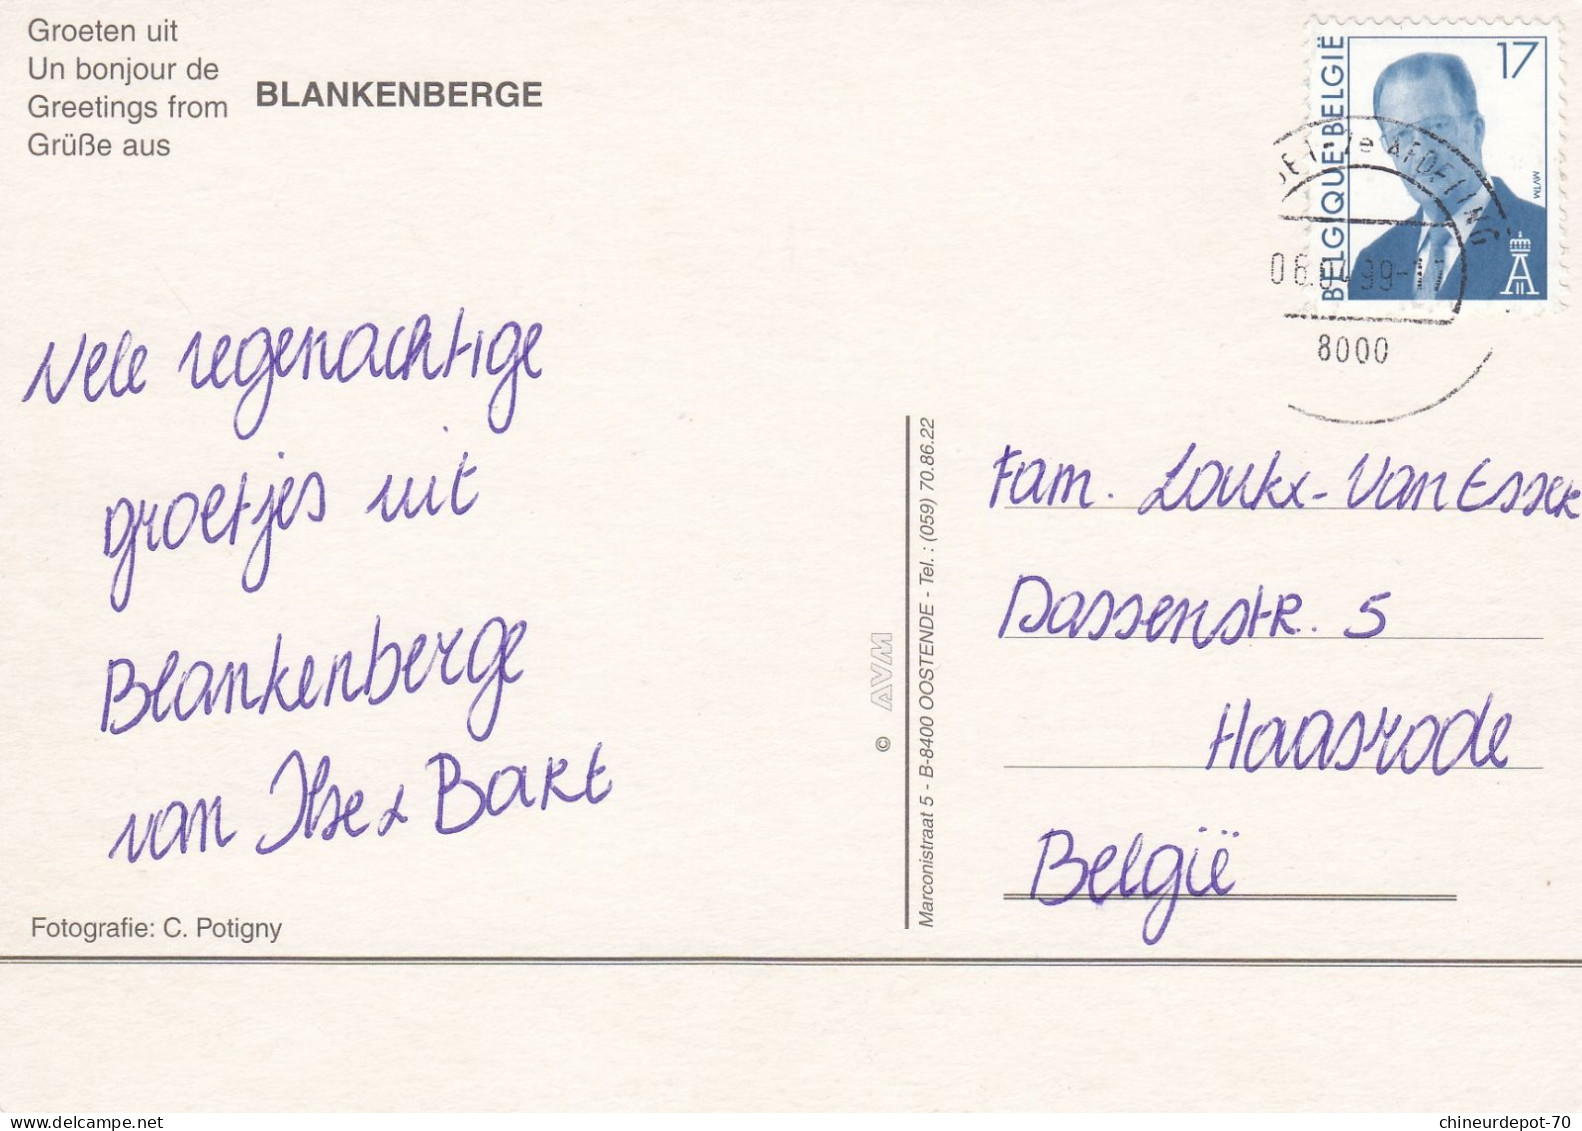 Groeten uit
Un bonjour de
Greetings from
Grüße aus
BLANKENBERGE
17
BELGIQUE·BELGIË
MVTM
1e AFDELING
06.04.99-1
8000
Vele regenachtige
groetjes uit
Blankenberge
van Ilse & Bart
Fotografie: C. Potigny
© AVM
Marconistraat 5 - B-8400 OOSTENDE - Tel. : (059) 70.86.22
Fam. Loukx-Van Esser
Dassenstr. 5
Haasrode
België
chineurdepot-70